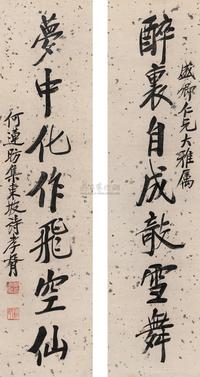 醉裏自成敲雪舞
仁兄大雅属
夢中化作飛空仙
何蓮舫集東坡詩孝胥